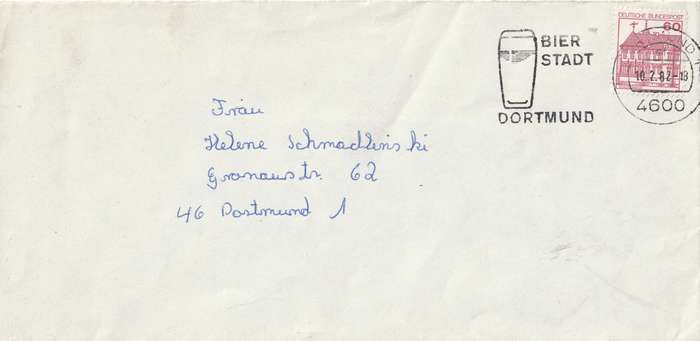 DEUTSCHE BUNDESPOST
60
BIER
STADT
DORTMUND
10.7.82-18
4600
Frau
Helene Schmadlinski
Gronaustr. 62
46 Dortmund 1